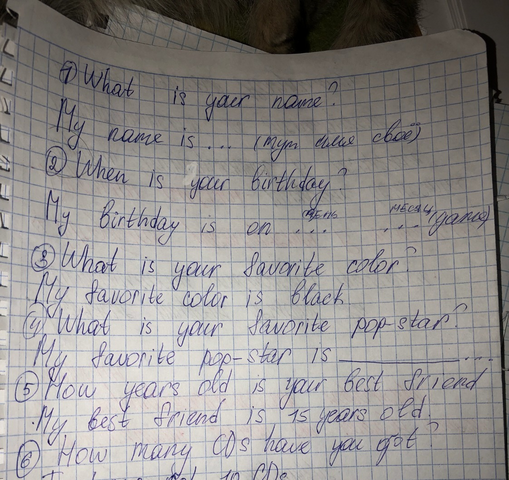 ① What is your name?
My name is ... (тут имя своё)
② When is your birthday?
My birthday is on ... ... 
день месяц
③ What is your favorite color?
My favorite color is black
④ What is your favorite pop-star?
My favorite pop-star is ________...
⑤ How years old is your best friend
My best friend is 15 years old.
⑥ How many CDs have you got?